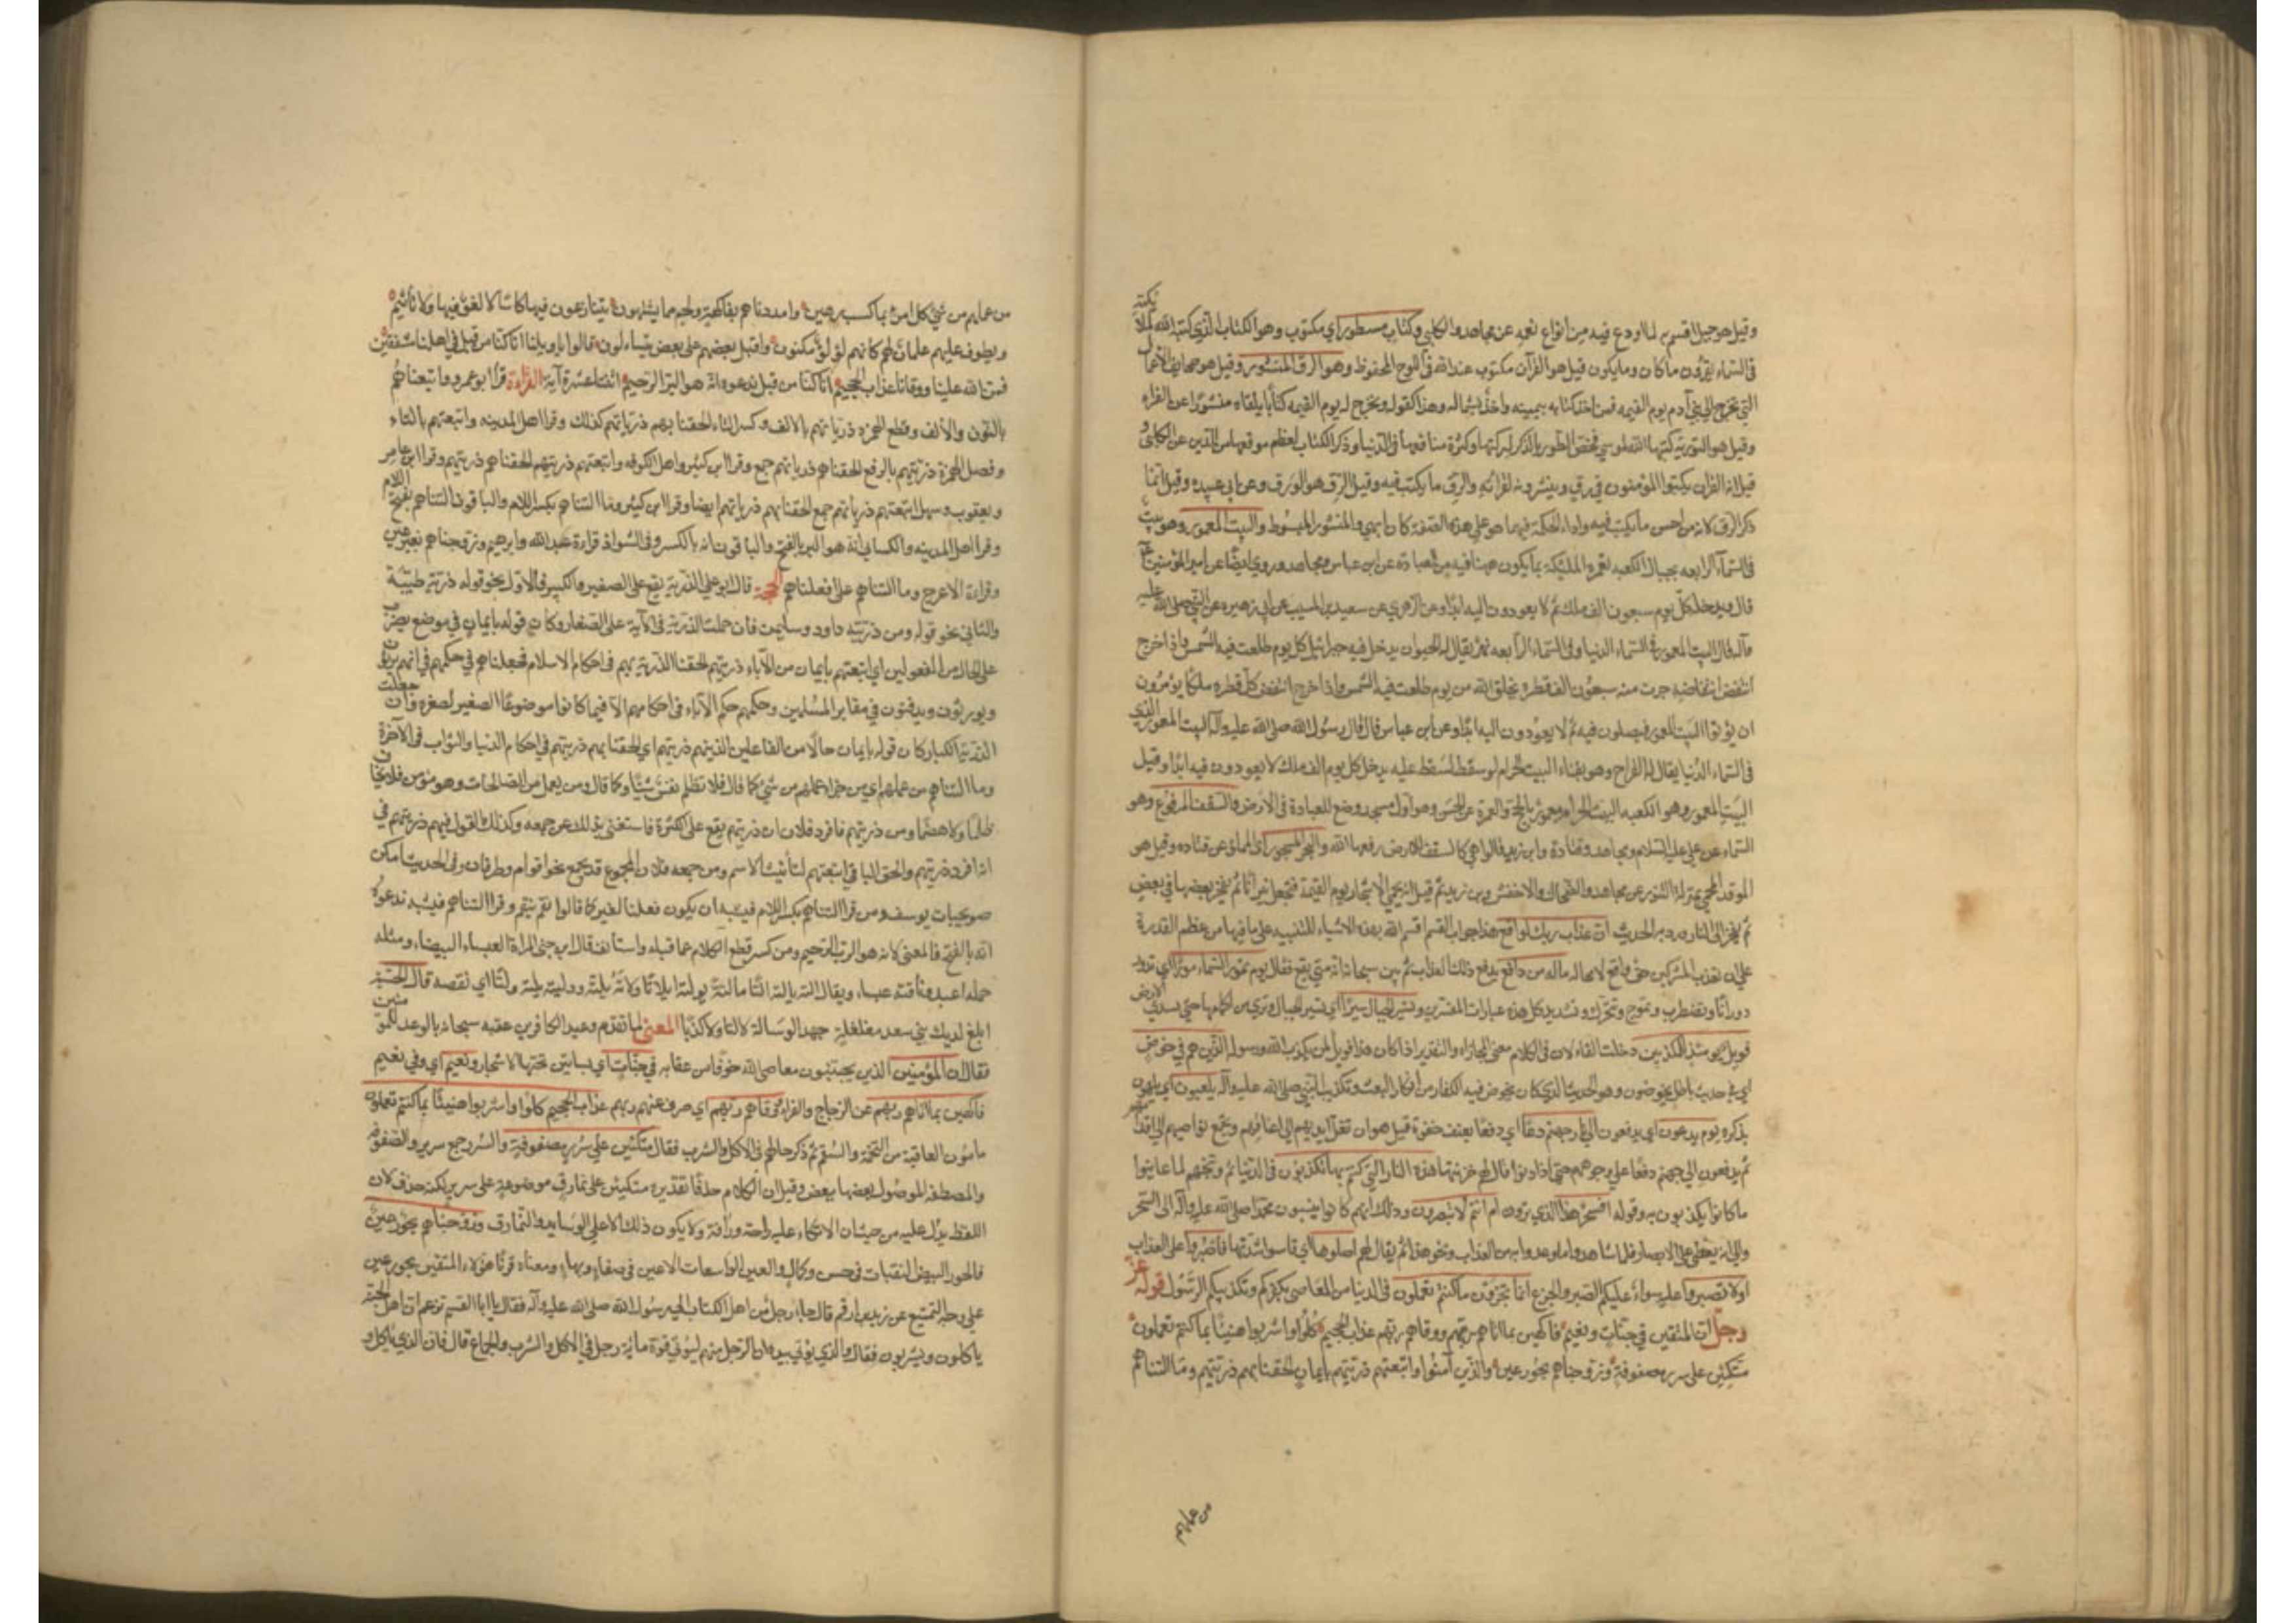 وقيل هو جبل اقسم به لما اودع فيه من انواع نعمه عن مجاهد والكلبي وكتاب مسطور اي مكتوب وهو الكتاب الذي كتبه الله لملائكته
في السماء يقرؤن ما كان وما يكون وقيل هو القرآن مكتوب عند الله في اللوح المحفوظ وهو الرق المنشور وقيل هو صحائف الاعمال
التي تخرج الى بني آدم يوم القيمة فمن اخذ كتابه بيمينه واخذ بشماله وهذا كقوله ونخرج له يوم القيمة كتابا يلقاه منشورا عن الفراء
وقيل هو التورية كتبها الله لموسى فخص الطور بالذكر لبركتها وكثرة منافعها في الدنيا وذكر الكتاب لعظم موقعها من الدين عن الكلبي و
قيل انه القرآن يكتبوا المؤمنون في رق وينشرونه لقرائته والرق ما يكتب فيه وقيل الرق هو الورق وعن ابي عبيدة وقيل انما
ذكر الرق لانه من احسن ما يكتب فيه واذا الحكمة فيما هو على هذه الصفة كان ابهى والمنشور المبسوط والبيت المعمور وهو بيت
في السماء الرابعه بحيال الكعبه تعمره الملئكة بما يكون منها فيه من العبادة عن ابن عباس ومجاهد وروي ايضا عن امير المؤمنين ع
قال ويدخله كل يوم سبعون الف ملك ثم لا يعودون اليه ابدا وعن الزهري عن سعيد بن المسيب عن ابي هريره عن النبي صلى الله عليه
وآله قال البيت المعمور في السماء الدنيا وفي السماء الرابعه نهر يقال له الحيوان يدخل فيه جبرائيل كل يوم طلعت فيه الشمس واذا خرج
انتفض انتفاضة جرت منه سبعون الف قطرة يخلق الله من كل قطره ملكا يؤمرون
ان يؤتوا البيت المعمور فيصلون فيه ثم لا يعودون اليه ابدا وعن ابن عباس قال قال رسول الله صلى الله عليه وآله البيت المعمور الذي
في السماء الدنيا يقال له الضراح وهو بفناء البيت الحرام لو سقط لسقط عليه يدخله كل يوم الف ملك لا يعودون فيه ابدا وقيل
البيت المعمور وهو الكعبه البيت الحرام معمور بالحج والعمرة عن الحسن وهو اول مسجد وضع للعبادة في الارض والسقف المرفوع وهو
السماء عن علي عليه السلام ومجاهد وقتادة وابن زيد قالوا هي كالسقف للارض رفعها الله والبحر المسجور اي المملو عن قتاده وقيل هو
الموقد المحمى بمنزلة التنور عن مجاهد والضحاك والاخفش وبن زيد ثم قيل انه يحمى الابحار يوم القيمة فتجعل نيرانا ثم يفجر بعضها في بعض
ثم يفجر الى النار ورد به الحديث ان عذاب ربك لواقع هذا جواب القسم اقسم الله بهذه الاشياء للتنبيه على ما فيها من عظم القدرة
على ان تعذيب المشركين حق واقع لا محاله ماله من دافع يدفع ذلك العذاب ثم بين سبحانه انه متى يقع فقال يوم تمور السماء مورا اي تدور
دورانا وتضطرب وتموج وتتحرك وتستدير كل هذه عبارات المفسرين وتسير الجبال سيرا اي تسير الجبال وتزول من اماكنها حتى تستوي الارض
فويل يومئذ للمكذبين دخلت الفاء لان في الكلام معنى المجازاه والتقدير اذا كان هذا فويل لمن يكذب الله ورسوله الذين هم في خوض
اي في حديث باطل يخوضون وهو الحديث الذي كان يخوض فيه الكفار من انكار البعث وتكذيب النبي صلى الله عليه وآله يلعبون اي يلهون
بذكره يوم يدعون اي يدفعون الى نار جهنم دعا اي دفعا بعنف وجفوة قيل هو ان تغل ايديهم الى اعناقهم وتجمع نواصيهم الى اقدامهم
ثم يدفعون الى جهنم دفعا على وجوههم حتى اذا دنوا قال لهم خزنتها هذه النار التي كنتم بها تكذبون في الدنيا ثم وبخهم لما عاينوا
ما كانوا يكذبون به وقوله افسحر هذا الذي ترون ام انتم لا تبصرون وذلك انهم كانوا ينسبون محمدا صلى الله عليه وآله الى السحر
والى انه يغطي على الابصار فلما شاهدوا ما وعدوا به من العذاب وبخوا بهذا ثم يقال لهم اصلوها اي قاسوا شدتها فاصبروا على العذاب
اولا تصبروا عليه سواء عليكم الصبر والجزع انما تجزون ما كنتم تعملون في الدنيا من المعاصي بكفركم وتكذيبكم الرسول قوله عز
وجل ان المتقين في جنات ونعيم فاكهين بما اتاهم ربهم ووقاهم ربهم عذاب الجحيم كلوا واشربوا هنيئا بما كنتم تعملون
متكئين على سرر مصفوفة وزوجناهم بحور عين والذين آمنوا واتبعتهم ذريتهم بايمان الحقنا بهم ذريتهم وما التناهم
من عملهم
من عملهم من شئ كل امرئ بما كسب رهين وامددناهم بفاكهة ولحم مما يشتهون يتنازعون فيها كاسا لا لغو فيها ولا تأثيم
ويطوف عليهم غلمان لهم كانهم لؤلؤ مكنون واقبل بعضهم على بعض يتساءلون قالوا انا كنا من قبل في اهلنا مشفقين
فمن الله علينا ووقانا عذاب السموم انا كنا من قبل ندعوه انه هو البر الرحيم اثنتا عشرة آية القراءة قرأ ابو عمرو واتبعناهم
بالنون والالف وقطع الهمزه ذرياتهم بالالف وكسر التاء الحقنا بهم ذرياتهم كذلك وقرا اهل المدينه واتبعتهم بالتاء
ووصل الهمزة ذريتهم بالرفع الحقنا بهم ذرياتهم جمع وقرا ابن كثير واهل الكوفه واتبعتهم ذريتهم الحقنا بهم ذريتهم وقرا ابن عامر
ويعقوب وسهل اتبعتهم ذرياتهم جمع الحقنا بهم ذرياتهم ايضا وقرا ابن كثير وما التناهم بكسر اللام والباقون التناهم بفتح اللام
وقرا اهل المدينه والكسائي انه هو البر بالفتح والباقون انه بالكسر وفي الشواذ قراءة عبد الله وابرهيم وزوجناهم بعيس عين
وقراءة الاعرج وما آلتناهم على افعلناهم الحجة قال ابو علي الذرية يقع على الصغير والكبير فالاول نحو قوله ذرية طيبة
والثاني نحو قوله ومن ذريته داود وسليمن فان حملت الذرية في الآية على الصغار وكان قوله بايمان في موضع نصب
على الحال من المفعولين اي اتبعتهم بايمان من الآباء ذريتهم الحقنا الذرية بهم في احكام الاسلام فجعلناهم في حكمهم في انهم يرثون
ويورثون ويدفنون في مقابر المسلمين وحكمهم حكم الآباء في احكامهم الا فيما كانوا موضوعا الصغير لصغره وان جعلت
الذرية الكبار كان قوله بايمان حالا من الفاعلين الذين هم ذريتهم اي الحقنا بهم ذريتهم في احكام الدنيا والثواب في الآخرة
وما التناهم من عملهم اي من جزاء عملهم من شئ كما قال فلا تظلم نفس شيئا وكما قال ومن يعمل من الصالحات وهو مؤمن فلا يخاف
ظلما ولا هضما ومن ذريتهم فافرد فلان ذريتهم يقع على الكثرة فاستغنى بذلك عن جمعه وكذلك القول فيهم ذريتهم في
انه افرد ذريتهم والحق التاء في اتبعتهم لتأنيث الاسم ومن جمعه فلان المجموع قد تجمع نحو اقوام وطرقات وفي الحديث انكن
صويحبات يوسف ومن قرا التناهم بكسر اللام فيشبه ان يكون فعلنا لغير كما قالوا نقم ينقم وقرا التناهم فيشبه ندعوه
انه بالفتح فالمعنى لانه هو البر الرحيم ومن كسر قطع الكلام عما قبله واستأنف قال ابن جني المرأة العيساء البيضاء ومثله
جمل اعيس وناقة عيساء ويقال الته يالته التا وآلته يولته ايلاتا ولاته يليته وولته يلته ولتا اي نقصه قال الحطيئة
ابلغ لديك بني سعد مغلغلة جهد الرسالة لا التا ولا كذبا المعنى لما تقدم وعيد الكافرين عقبه سبحانه بالوعد للمؤمنين
فقال ان المؤمنين الذين يجتنبون معاصي الله خوفا من عقابه في جنات اي بساتين تحتها الاشجار ونعيم اي وفي نعيم
فاكهين بما اتاهم ربهم عن الزجاج والفراء ووقاهم ربهم اي صرف عنهم ربهم عذاب الجحيم كلوا واشربوا هنيئا بما كنتم تعملون
مأمون العاقبة من التخمة والسقم ثم ذكر حالهم في الاكل والشرب فقال متكئين على سرر مصفوفة والسرر جمع سرير والمصفوفه
والمصطفه الموصول بعضها ببعض وقيل ان في الكلام حذفا تقديره متكئين على نمارق موضوعة على سرر لكنه حذف لان
اللفظ يدل عليه من حيث ان الاتكاء عليه راحة ورأفة ولا يكون ذلك الا على الوسايد والنمارق وزوجناهم بحور عين
فالحور البيض النقيات في حسن وكمال والعين الواسعات الاعين في صفاء وبهاء ومعناه قرنا هؤلاء المتقين بحور عين
على وجه التمتيع عن زيد بن ارقم قال جاء رجل من اهل الكتاب الى رسول الله صلى الله عليه وآله فقال يا ابا القسم تزعم ان اهل الجنة
ياكلون ويشربون فقال والذي نفسي بيده ان الرجل منهم ليؤتى قوة مائة رجل في الاكل والشرب والجماع قال فان الذي ياكل و